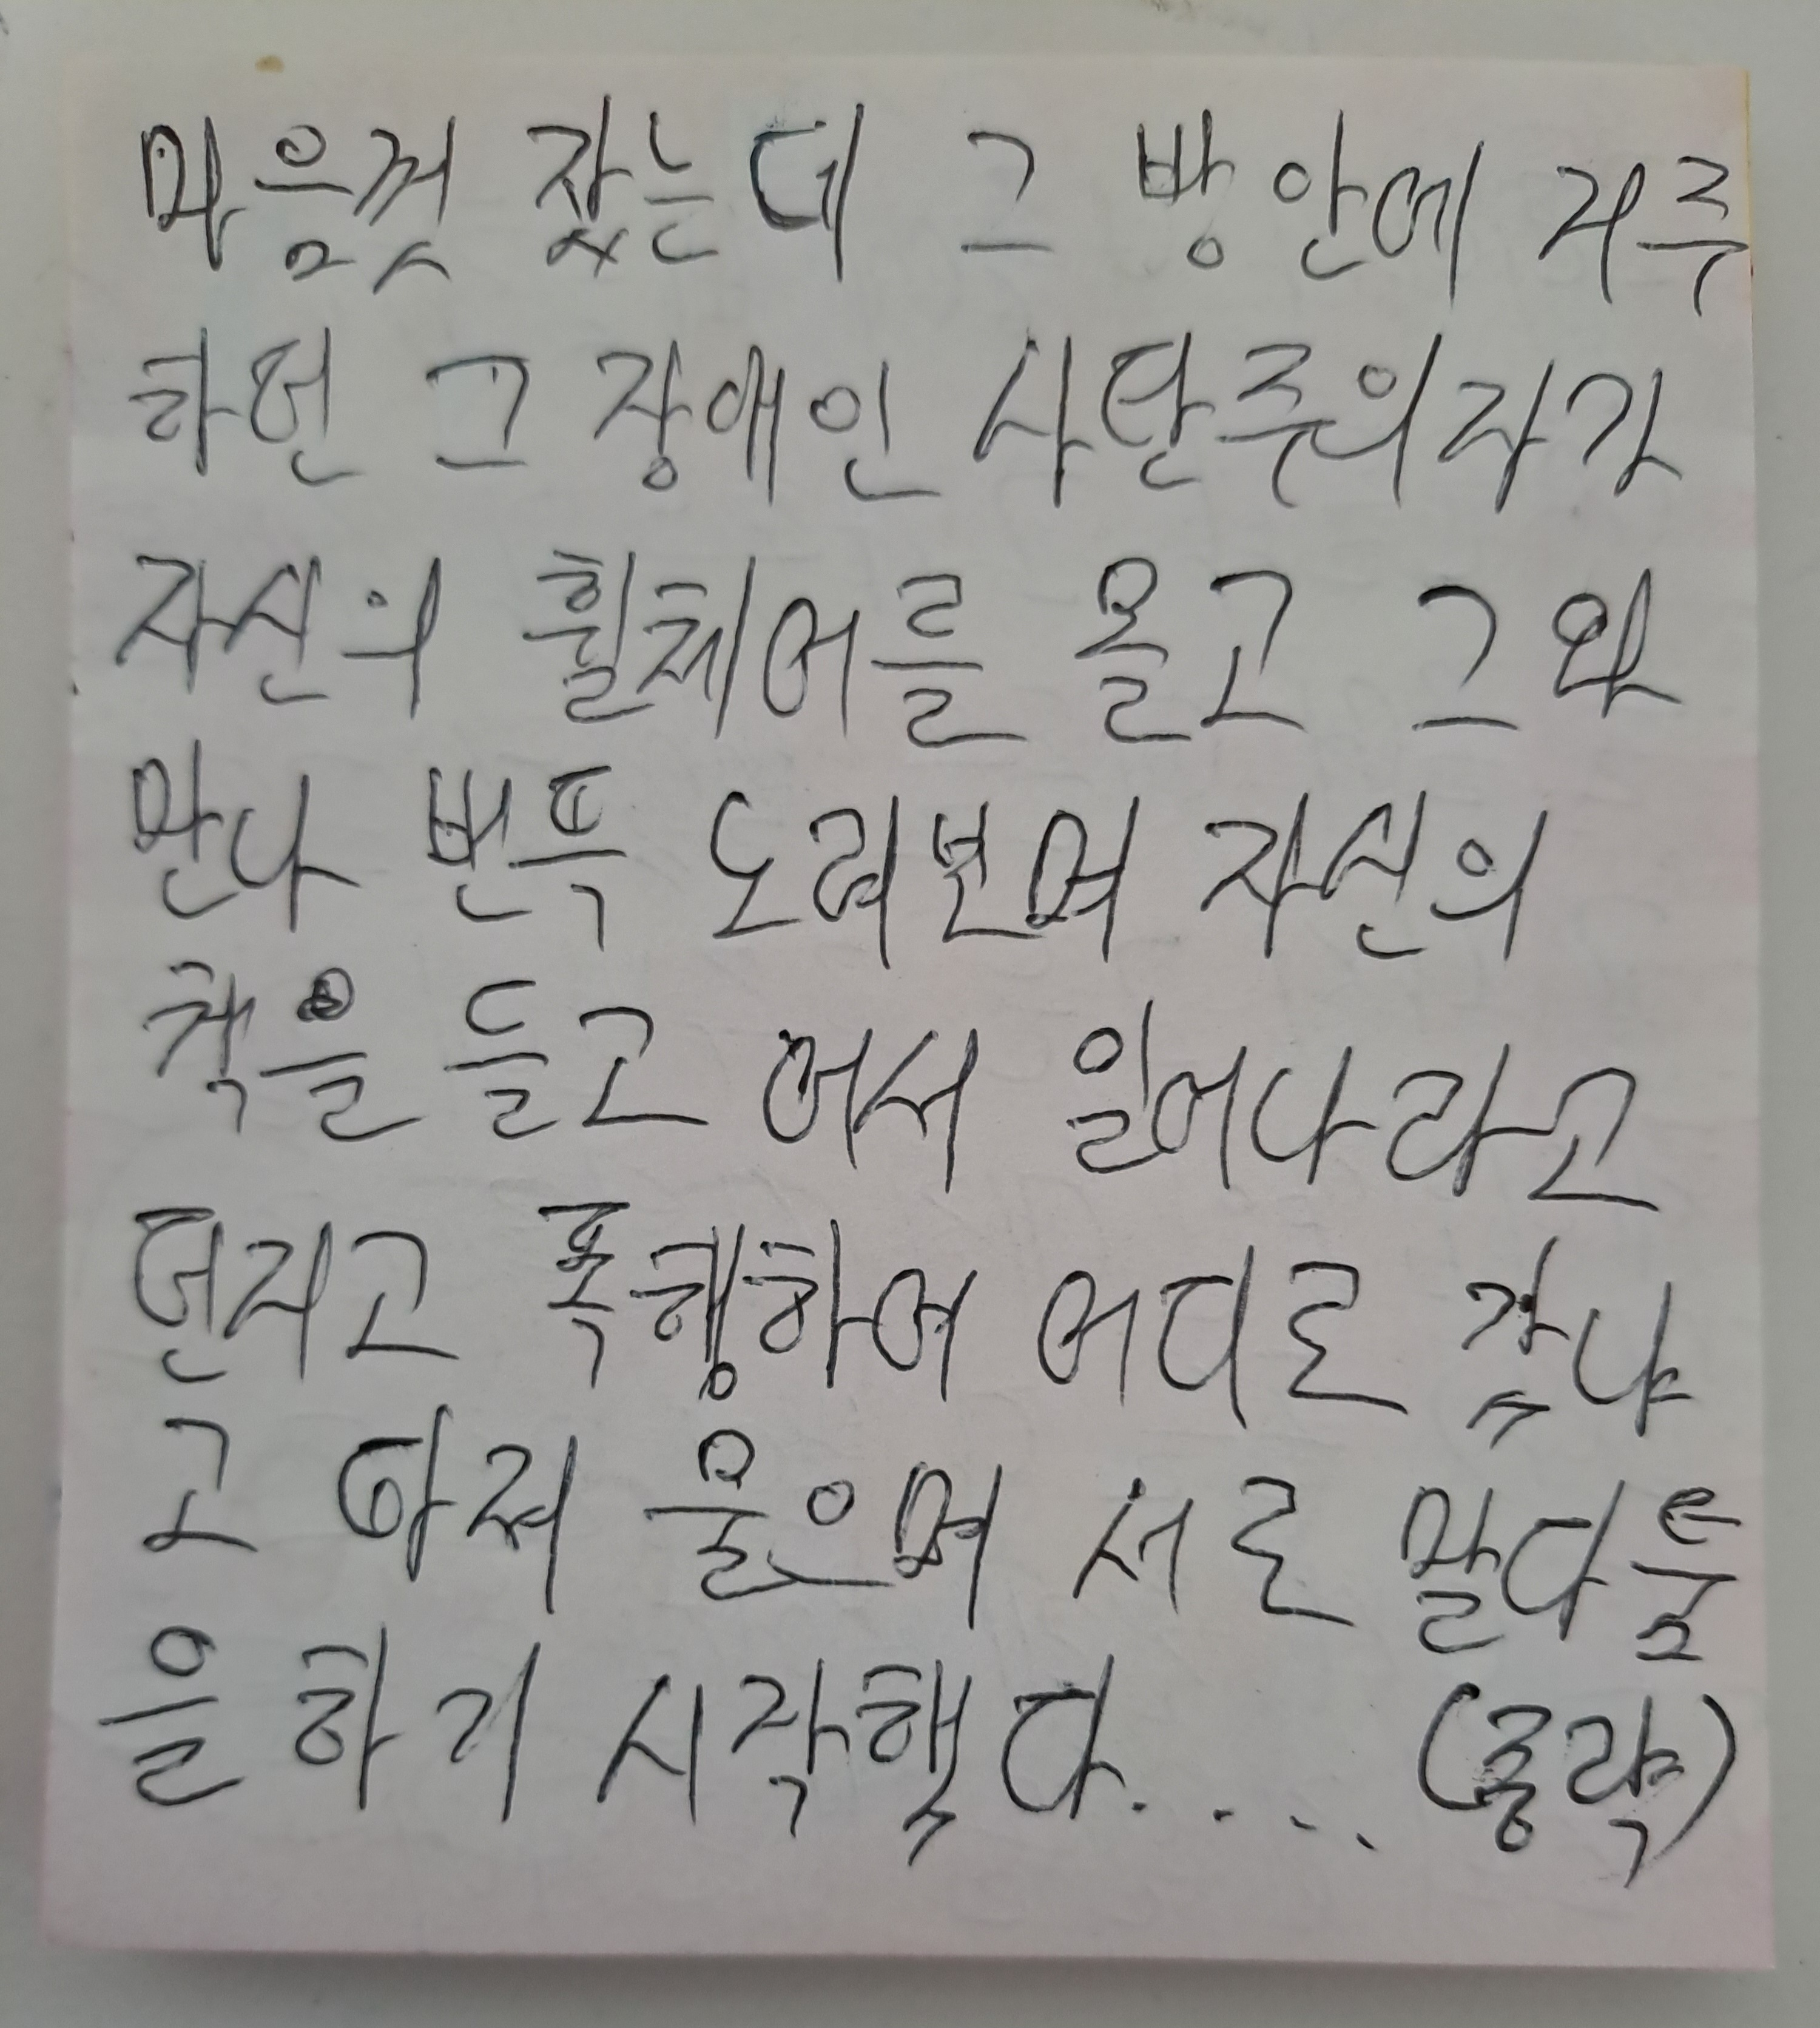 마음껏 잤는데 그 방 안에 거주
하던 그 장애인 사탄주의자가
자신의 휠체어를 몰고 그와
만나 번뜩 노려보며 자신의
책을 들고 어서 일어나라고
던지고 폭행하여 어디로 갔냐
고 따져 물으며 서로 말다툼
을 하기 시작했다.... (중략)